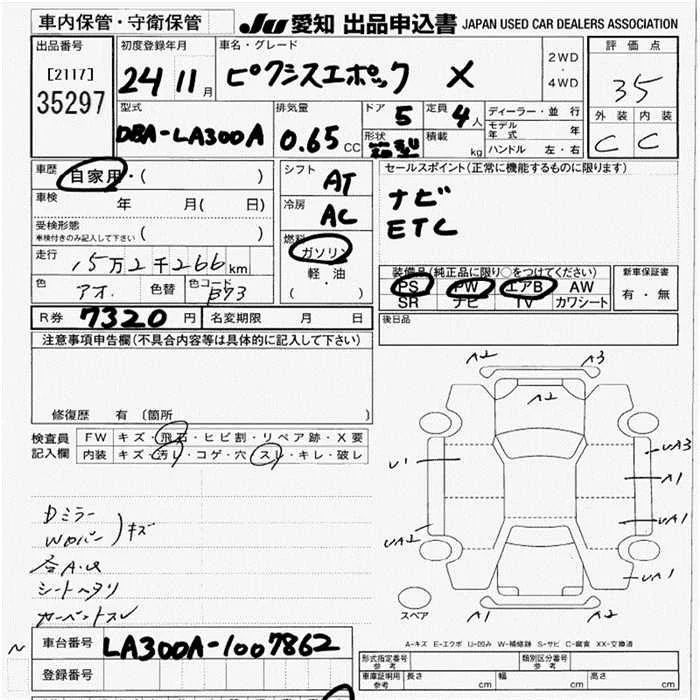 車内保管・守衛保管
JU 愛知 出品申込書 JAPAN USED CAR DEALERS ASSOCIATION
出品番号
[2117]
35297
初度登録年月
24 11月
車名・グレード
ピクシスエポック X
2WD
・
4WD
評価点
35
外装 内装
C C
型式
DBA-LA300A
排気量
0.65 CC
ドア 5
定員 4人
形状 箱型
積載 kg
ディーラー・並行
モデル年式 年
ハンドル 左・右
車歴
自家用・( )
車検 年 月( 日)
受検形態
車検付きのみ記入して下さい ( )
走行 15万2千266km
色 アオ. 色替 色コード B93
シフト AT
冷房 AC
燃料
ガソリン
軽・油
( )
セールスポイント(正常に機能するものに限ります)
ナビ
ETC
装備品(純正品に限り○をつけてください)
PS PW エアB AW
SR ナビ TV カワシート
新車保証書
有・無
R券 7320円 名変期限 月 日
後日品
注意事項申告欄(不具合内容等は具体的に記入して下さい)
修復歴 有 〔箇所 〕
検査員
記入欄
FW キズ・飛石・ヒビ割・リペア跡・X要
内装 キズ・汚レ・コゲ・穴・スレ・キレ・破レ
Dミラー
Wロバー )キズ
全A.U
シートヘタリ
カーペットスレ
A2 A3
A2
U1
UA3
A1
UA1
UA2
UA1
A1 A2
スペア
A-キズ E-エクボ U-凹み W-補修跡 S-サビ C-腐食 XX-交換済
車台番号 LA300A-1007862
登録番号
形式指定番号
参考
類別区分番号
参考
車庫証明用
参考
長さ cm 幅 cm 高さ cm